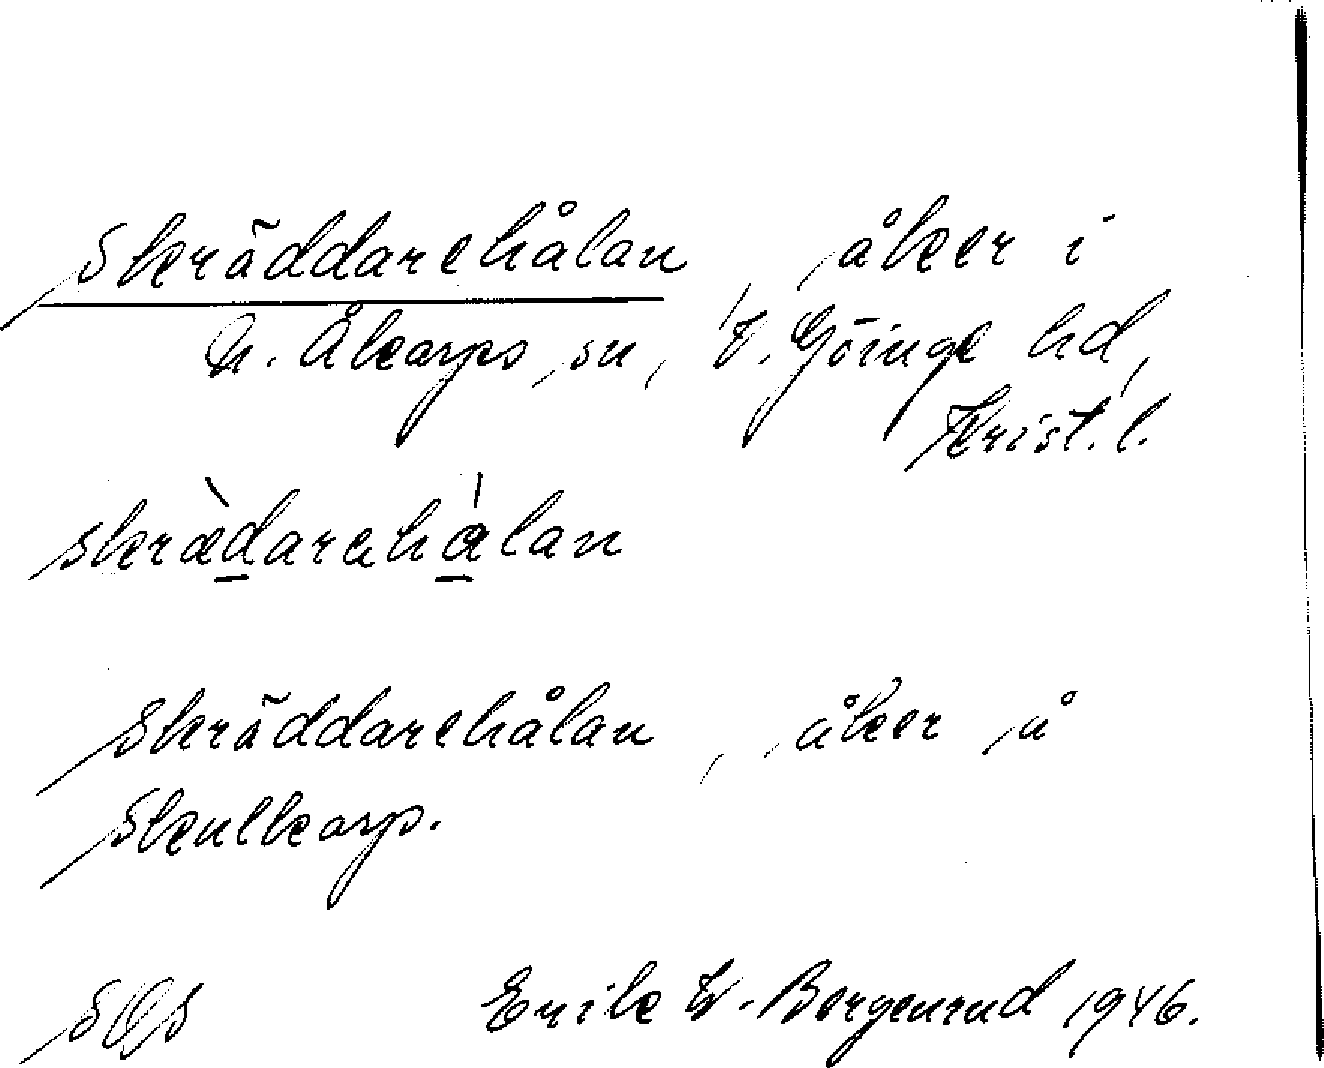 Skräddarehålan åker i
N. Åkarps sn, V. Göinge hd,
Krist. l.
skrædarehålan
Skräddarehålan, åker å
Skulkarp.
SOS Erik W. Bergenrud 1946.